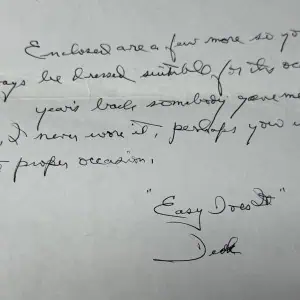 Enclosed are a few more so yo
ays be dressed suitable for the occ
year's back somebody gave me
, I never wore it, perhaps you w
proper occasion.
"Easy Does It"
Dick